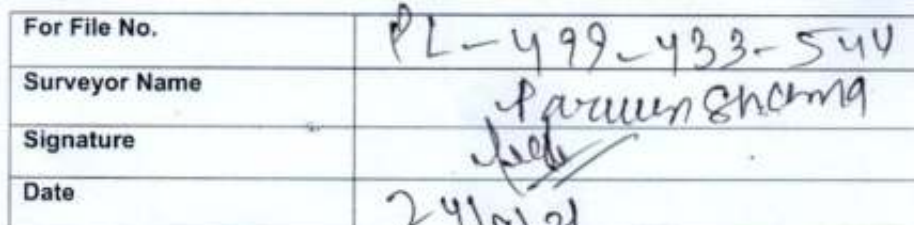 For File No. PL-499-433-544
Surveyor Name Parveen Sharma
Signature
Date